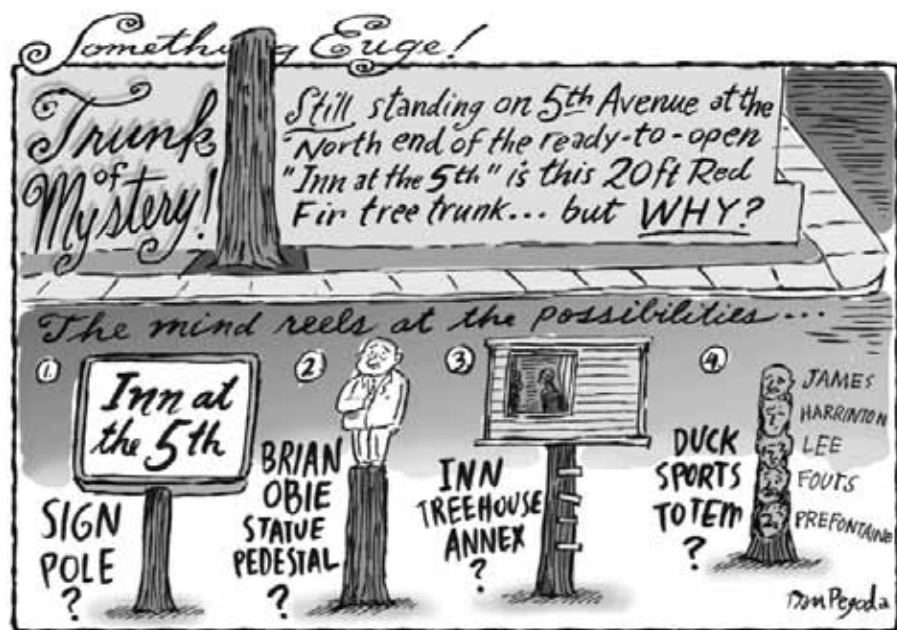 Something Euge!
Trunk
of
Mystery!
Still standing on 5th Avenue at the
North end of the ready-to-open
"Inn at the 5th" is this 20ft Red
Fir tree trunk... but WHY?
The mind reels at the possibilities...
1.
Inn at
the 5th
SIGN
POLE
?
2.
BRIAN
OBIE
STATUE
PEDESTAL
?
3.
INN
TREEHOUSE
ANNEX
?
4.
DUCK
SPORTS
TOTEM
?
JAMES
HARRINTON
LEE
FOUTS
PREFONTAINE
Dan Pegoda